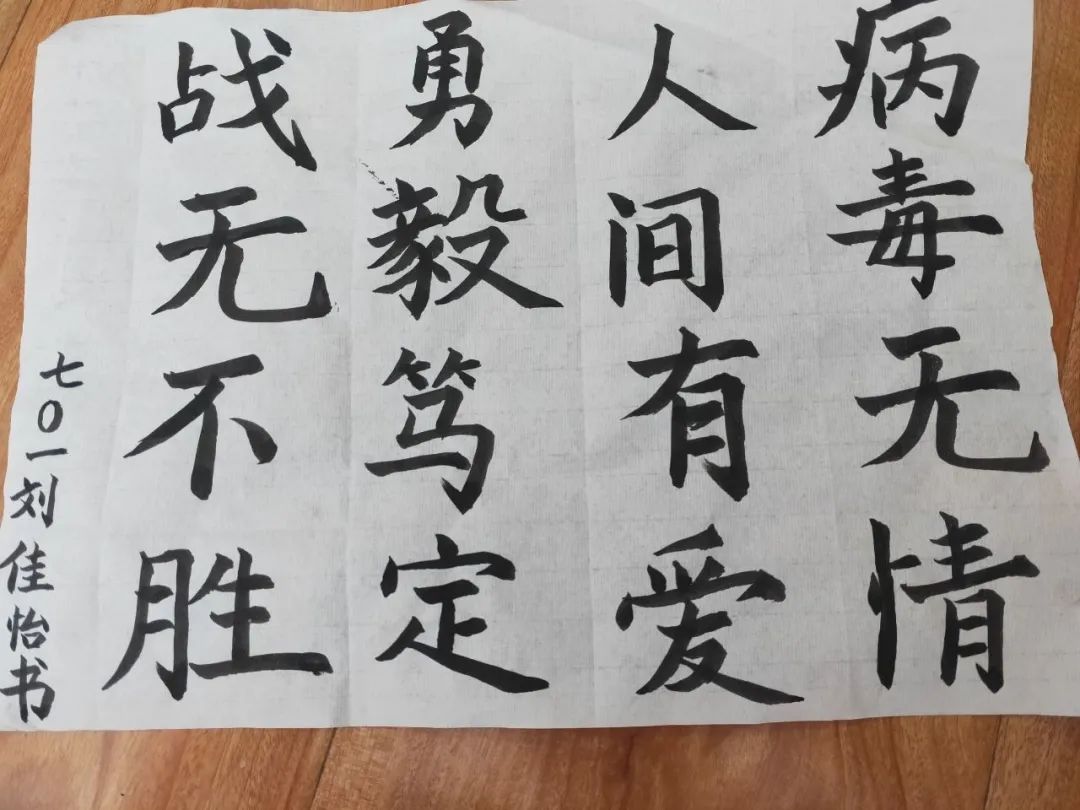 病毒无情
人间有爱
勇毅笃定
战无不胜
七〇一刘佳怡书